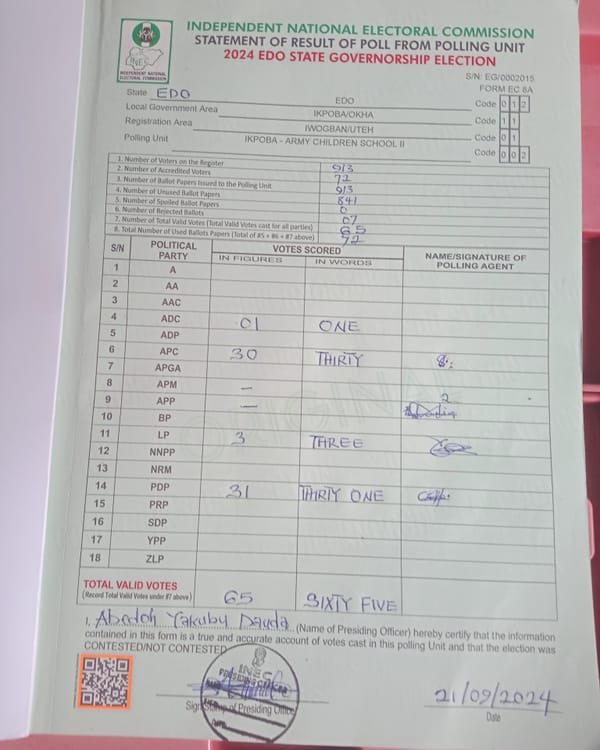 INDEPENDENT NATIONAL ELECTORAL COMMISSION
STATEMENT OF RESULT OF POLL FROM POLLING UNIT
2024 EDO STATE GOVERNORSHIP ELECTION
INEC
INDEPENDENT NATIONAL ELECTORAL COMMISSION
S/N: EG/0002015
FORM EC 8A
State EDO EDO Code 0 1 2
Local Government Area IKPOBA/OKHA Code 1 1
Registration Area IWOGBAN/UTEH Code 0 1
Polling Unit IKPOBA - ARMY CHILDREN SCHOOL II Code 0 0 2
1. Number of Voters on the Register 913
2. Number of Accredited Voters 72
3. Number of Ballot Papers Issued to the Polling Unit 913
4. Number of Unused Ballot Papers 841
5. Number of Spoiled Ballot Papers 0
6. Number of Rejected Ballots 07
7. Number of Total Valid Votes (Total Valid Votes cast for all parties) 65
8. Total Number of Used Ballots Papers (Total of #5 + #6 + #7 above) 72
S/N POLITICAL PARTY VOTES SCORED NAME/SIGNATURE OF POLLING AGENT
IN FIGURES IN WORDS
1 A
2 AA
3 AAC
4 ADC 01 ONE
5 ADP
6 APC 30 THIRTY
7 APGA
8 APM —
9 APP —
10 BP
11 LP 3 THREE
12 NNPP
13 NRM
14 PDP 31 THIRTY ONE
15 PRP
16 SDP
17 YPP
18 ZLP
TOTAL VALID VOTES 65 SIXTY FIVE
(Record Total Valid Votes under #7 above)
I, Abedoh Yakubu Dauda (Name of Presiding Officer) hereby certify that the information
contained in this form is a true and accurate account of votes cast in this polling Unit and that the election was
CONTESTED/NOT CONTESTED
INEC
PRESIDING OFFICER
Sign/Stamp of Presiding Officer
21/09/2024
Date